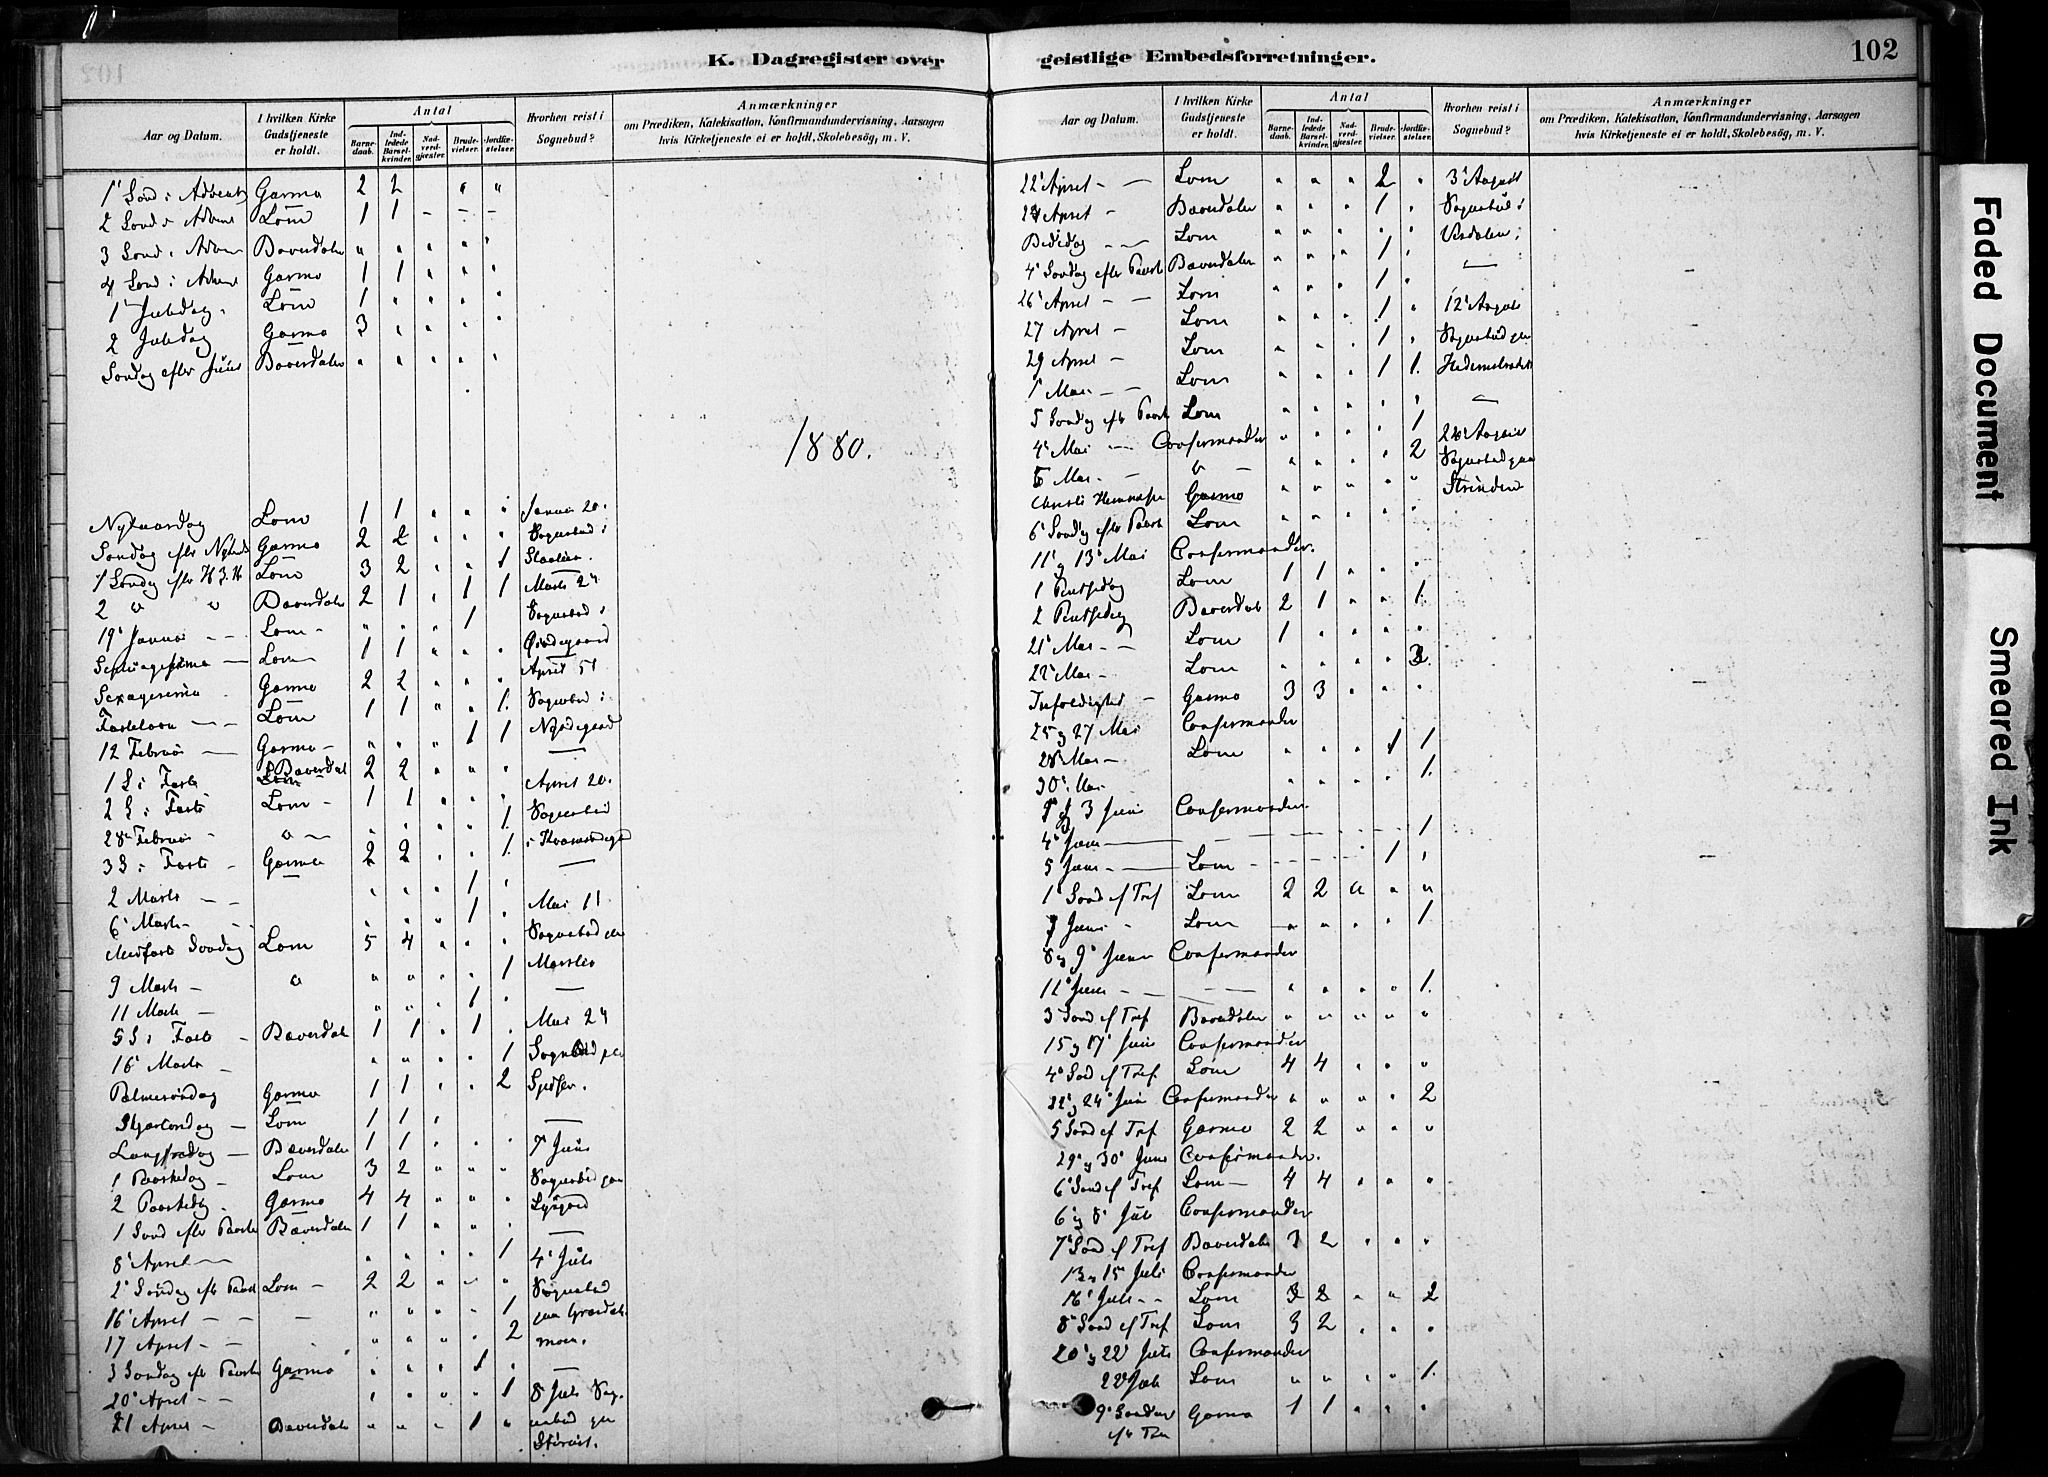 K. Dagregister over
Aar og Datum.
I hvilken Kirke Gudstjeneste er holdt.
Antal
Barnedaab.
Indledede Barselkvinder.
Nadverdgjæster.
Brudevielser.
Jordfæstelser.
Hvorhen reist i Sognebud?
Anmærkninger
om Prædiken, Katekisation, Konfirmandundervisning, Aarsagen
hvis Kirketjeneste ei er holdt, Skolebesög, m. V.
1' Sønd i Advent Garmo 2 2 " "
2 Sønd i Advent Lom 1 1 - - -
3 Sønd i Advent Bæverdalen " " " " "
4 Sønd i Advent Garmo 1 1 " " "
1' Juledag Lom 1 " " " "
2 Juledag Garmo 3 " " " "
Søndag efter Juul Bæverdalen " " " " "
1880.
Nytaarsdag Lom 1 1 " " " Januar 20.
Søndag efter Nytaar Garmo 2 2 " " " Sognebud i
1 Søndag efter H 3 K Lom 3 2 " " 1
2 " " Bæverdalen 2 1 " 1 1 Marts 24
19' Januar - - Lom - " " " 1 Sognebud i
Septuagesima Lom 1 1 " " "
Sexagesima Garmo 2 2 " " " April 5'
Fastelavn - - Lom 1 1 " " 1. Sognebud i
12 Februar - Garmo - " " " 1 1
1 S i Faste Bæverdal 2 2 " " "
2 S i Faste Lom - 1 1 " " " April 20.
28 Februar - " - " " " " 1. Sognebud
3 S i Faste - Garmo 2 2 " " 1.
2 Marts - - " " " 1 "
6' Marts - - " " " 1 " Mai 11
Midfaste Søndag Lom 5 4 " " " Sognebud paa
9 Marts - " " " " " 1
11 Marts - " " " 1 "
5 S i Faste - Bæverdal 1 1 " 1 " Mai 24
16 Marts - " " " " 1 Sognebud paa
Palmesøndag Garmo 1 1 " " 2
Skjærtorsdag - Lom 1 1 "
Langfredag - Bæverdalen 1 1 " " " 7' Juni
1 Paaskedag - Lom 3 2 " " " Sognebud paa
2 Paaskedag Garmo 4 4 " " " Lysgard
1 Sønd efter Paaske Bæverdalen 1 1 " "
8' April - - " " " " 1 4' Juli
2' Søndag eft Paaske Lom - 2 2 " " " Sognebud
16 April - - - " " " " 1
17 April - - " " " " 2 moen.
3 Søndag eft Paaske Garmo " " " 1 "
20' April - - " " " " 1 8 Juli Sog-
21 April - Bæverdalen " " " 1 " nebud paa

geistlige Embedsforretninger.
102
Aar og Datum.
I hvilken Kirke Gudstjeneste er holdt.
Antal
Barnedaab.
Indledede Barselkvinder.
Nadverdgjæster.
Brudevielser.
Jordfæstelser.
Hvorhen reist i Sognebud?
Anmærkninger
om Prædiken, Katekisation, Konfirmandundervisning, Aarsagen
hvis Kirketjeneste ei er holdt, Skolebesög, m. V.
22' April - - Lom " " " 2 " 3' August
24 April - Bæverdalen " " " 1 " Sognebud i
Bededag - - Lom " " " " "
4' Søndag efter Paaske Bæverdalen " " " 1 "
26' April - - Lom " " " 1 "
27 April - Lom " " " 1 " 12' August
29 April - Lom " " " 1 " Sognebud paa
1 Mai - - Lom " " " 1 1.
5 Søndag eft Paaske Lom " " " " "
4' Mai - Confirmander " " " " 1
Mai - " - " " " " 2 Sognebud paa
Christi Himmelfar Garmo " " " " "
6' Søndag efter Paaske Lom " " " " "
11' og 13' Mai Confirmander.
1 Pintsedag Lom 1 1 " " "
2 Pintsedag Bæverdal 2 1 " " 1
21' Mai - - Lom 1 " " " "
22' Mai - Lom " " " "
Trefoldighed - Garmo 3 3 " " "
25 og 27 Mai Confirmander
28' Mai - Lom " " " 1 1
30' Mai " " " " 1.
og 3 Juni Confirmander.
4' Juni - - - 1
5 Juni - Lom - 1 "
1' Sønd ef Tref Lom 2 2 " " "
7 Juni - Lom " " " " 1
8 og 9' Juni Confirmander
11' Juni - - - " " " " 1.
3 Sønd ef Tref Bæverdalen " " " " "
15 og 17' Juni Confirmander
4' Sønd ef Tref. Lom 4 4 " " "
22' og 24' Juni Confirmander " " " " 2
5 Sønd ef Tref Garmo 2 2 " " "
29' og 30' Juni Confirmander.
6' Sønd ef Tref Lom - 4 4 " " "
6' og 8' Juli Confirmander
7' Sønd ef Tref Bæverdalen 3 2 " " "
13 og 15' Juli Confirmander
16' Juli - - Lom " " 2
8' Sønd ef Tref Lom 3 2 " " "
20' og 22' Juli Confirmander
22' Juli Lom " " " " 1.
9' Søndag Garmo 1 1 " " "

Faded Document
Smeared Ink